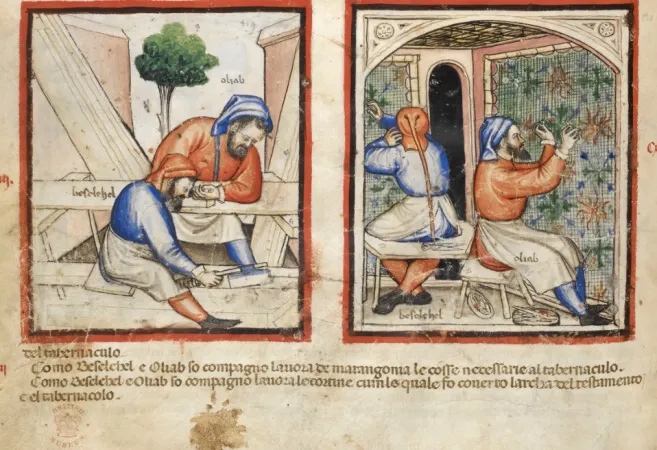 oliab
beselehel
oliab
beselehel
del tabernaculo.
Como Beselehel e Oliab so compagno lauora de marangonia le cosse necessarie al tabernaculo.
Como Beselehel e Oliab so compagno lauora le cortine cum le quale fo couerto larcha del testamento
e el tabernacolo.